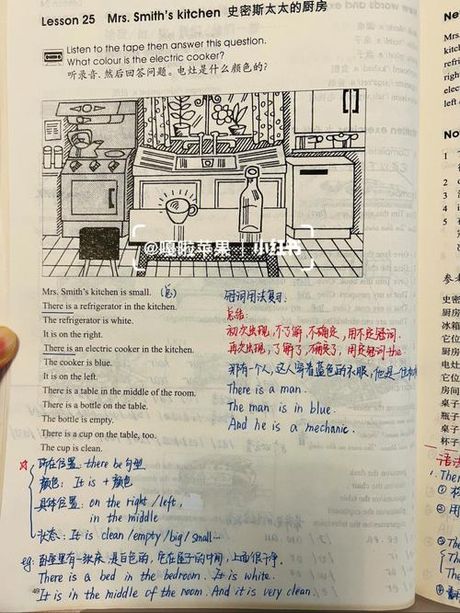 Lesson 25 Mrs. Smith's kitchen 史密斯太太的厨房
Listen to the tape then answer this question.
What colour is the electric cooker?
听录音,然后回答问题。电灶是什么颜色的?
@嘎啦苹果 小红书
Mrs. Smith's kitchen is small. (总)
There is a refrigerator in the kitchen.
The refrigerator is white.
It is on the right.
There is an electric cooker in the kitchen.
The cooker is blue.
It is on the left.
There is a table in the middle of the room.
There is a bottle on the table.
The bottle is empty.
There is a cup on the table, too.
The cup is clean.
冠词用法复习.
总结:
初次出现,不了解,不确定,用不定冠词.
再次出现,了解了,确定了,用定冠词 the
那有一个人,这人穿着蓝色的衣服,他是一位
There is a man.
The man is in blue.
And he is a mechanic.
所在位置: there be 句型
颜色: It is + 颜色
具体位置: on the right / left,
in the middle
状态: It is clean / empty / big / small...
eg: 卧室里有一张床,是白色的,它在屋子的中间,上面很干净.
There is a bed in the bedroom. It is white.
It is in the middle of the room. And it is very clean.
49